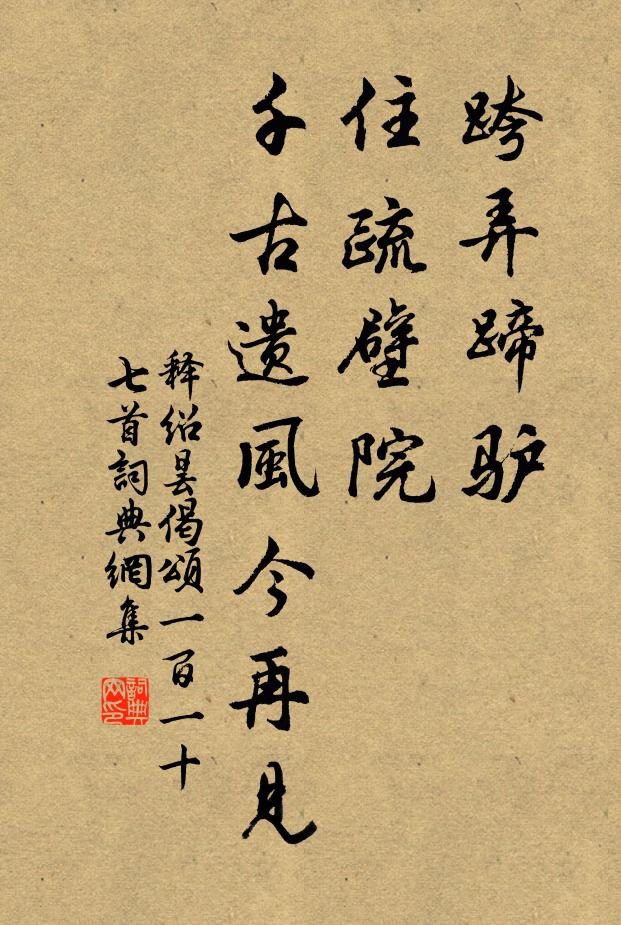 跨弄蹄驴
住疏壁院
千古遗風今再见
释绍昙偈頌一百一十
七首詞典網集
詞典
网印